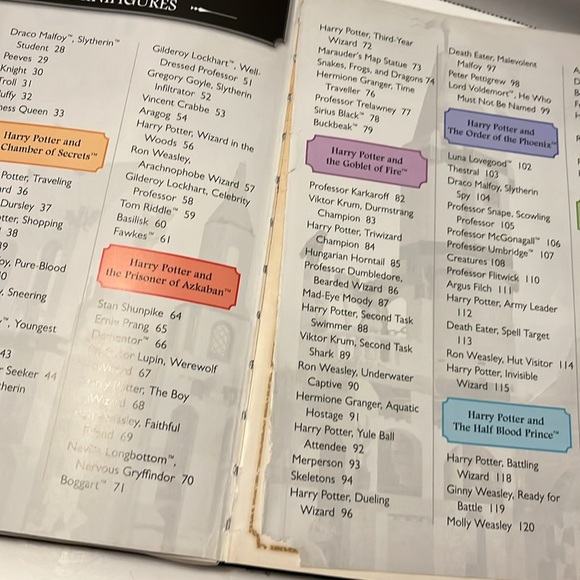 Draco Malfoy™, Slytherin™
Student 28
Peeves 29
Knight 30
Troll 31
32
Queen 33
Harry Potter and
Chamber of Secrets™
Potter, Traveling
36
Dursley 37
Shopping
38
Pure-Blood
Sneering
Youngest
43
Seeker 44
Gilderoy Lockhart™, Well-
Dressed Professor 51
Gregory Goyle, Slytherin
Infiltrator 52
Vincent Crabbe 53
Aragog 54
Harry Potter, Wizard in the
Woods 56
Ron Weasley,
Arachnophobe Wizard 57
Gilderoy Lockhart, Celebrity
Professor 58
Tom Riddle™ 59
Basilisk 60
Fawkes™ 61
Harry Potter and
the Prisoner of Azkaban™
Stan Shunpike 64
Ernie Prang 65
Dementor™ 66
Lupin, Werewolf
67
Potter, The Boy
Wizard 68
Weasley, Faithful
Friend 69
Neville Longbottom™,
Nervous Gryffindor 70
Boggart™ 71
Harry Potter, Third-Year
Wizard 72
Marauder's Map Statue 73
Snakes, Frogs, and Dragons 74
Hermione Granger, Time
Traveller 76
Professor Trelawney 77
Sirius Black™ 78
Buckbeak™ 79
Harry Potter and
the Goblet of Fire™
Professor Karkaroff 82
Viktor Krum, Durmstrang
Champion 83
Harry Potter, Triwizard
Champion 84
Hungarian Horntail 85
Professor Dumbledore,
Bearded Wizard 86
Mad-Eye Moody 87
Harry Potter, Second Task
Swimmer 88
Viktor Krum, Second Task
Shark 89
Ron Weasley, Underwater
Captive 90
Hermione Granger, Aquatic
Hostage 91
Harry Potter, Yule Ball
Attendee 92
Merperson 93
Skeletons 94
Harry Potter, Dueling
Wizard 96
Death Eater, Malevolent
Malfoy 97
Peter Pettigrew 98
Lord Voldemort™, He Who
Must Not Be Named 99
Harry Potter and
The Order of the Phoenix™
Luna Lovegood™ 102
Thestral 103
Draco Malfoy, Slytherin
Spy 104
Professor Snape, Scowling
Professor 105
Professor McGonagall™ 106
Professor Umbridge™ 107
Creatures 108
Professor Flitwick 110
Argus Filch 111
Harry Potter, Army Leader
112
Death Eater, Spell Target
113
Ron Weasley, Hut Visitor 114
Harry Potter, Invisible
Wizard 115
Harry Potter and
The Half Blood Prince™
Harry Potter, Battling
Wizard 118
Ginny Weasley, Ready for
Battle 119
Molly Weasley 120